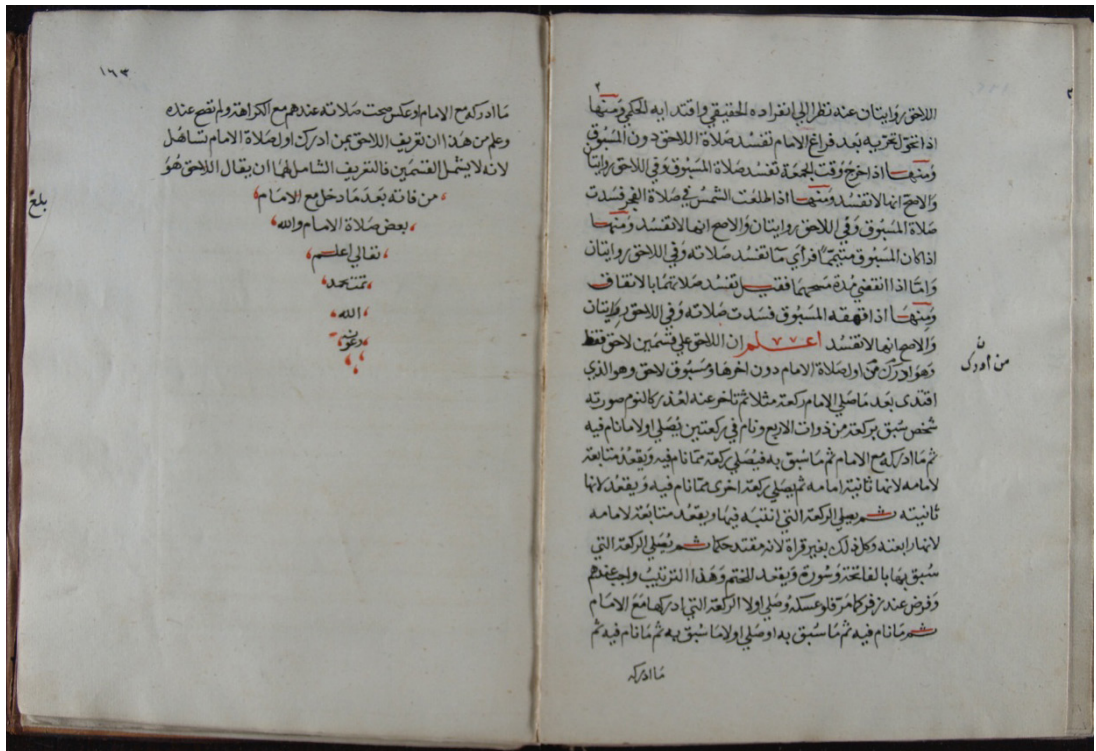 ٢
٣
اللاحق روايتان عنده نظرا الى انفراده الحقيقي واقتدايه الحكمي ومنها
اذا تحرى لتحريه بعد فراغ الامام تفسد صلاة اللاحق دون المسبوق
ومنها اذا خرج وقت الجمعة تفسد صلاة المسبوق وفي اللاحق روايتا
والاصح انها لا تفسد ومنها اذا طلعت الشمس في صلاة الفجر فسدت
صلاة المسبوق وفي اللاحق روايتان والاصح انها لا تفسد ومنها
اذا كان المسبوق متيمما فرأي مآ تفسد صلاته وفي اللاحق روايتان
واما اذا انقضي مدة مسحهما فقيل تفسد صلاتهما بالاتفاق
ومنها اذا قهقه المسبوق فسدت صلاته وفي اللاحق روايتان
والاصح انها لا تفسد اعلم ان اللاحق علي قسمين لاحق فقط
وهو ادرك من اول صلاة الامام دون اخرها ومسبوق لاحق وهو الذي
من أدرك
اقتدى بعد ما صلي الامام ركعة مثلا ثم تاخر عنه لعذر كالنوم صورته
شخص سبق بركعة من ذوات الاربع ونام في ركعتين يصلي اولا ما نام فيه
ثم ما ادركه مع الامام ثم ما سبق به فيصلي ركعة مما نام فيه ويقعد متابعة
لامامه لانها ثانية امامه ثم يصلي ركعة اخرى مما نام فيه ويقعد لانها
ثانيته ثم يصلي الركعة التي انتبه فيها ويقعد متابعة لامامه
لانها رابعته وكل ذلك بغير قراة لانه مقتد حكما ثم يصلي الركعة التي
سبق بها بالفاتحة وسورة ويقعد للختم وهذا الترتيب واجب عندهم
وفرض عند زفر كما مر فلو عكسه وصلي اولا الركعة التي ادركها مع الامام
ثم ما نام فيه ثم ما سبق به او صلي اولا ما سبق به ثم ما نام فيه ثم
ما ادركه
١٦٣
ما ادركه مع الامام او عكس صحت صلاته عندهم مع الكراهة ولم تصح عنده
وعلم من هذا ان تعريف اللاحق بمن ادرك اول صلاة الامام تساهل
لانه لا يشمل القسمين فالتعريف الشامل لهما ان يقال اللاحق هو
من فاته بعد ما دخل مع الامام
بلغ
بعض صلاة الامام والله
تعالى اعلم
تمت بحمد
الله
وعونه